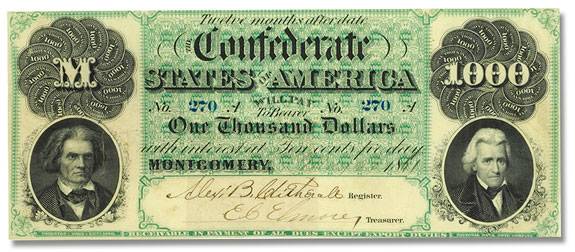 Twelve months after date
M
the Confederate
1000
STATES OF AMERICA
No. 270 A WILL PAY No. 270 A
to Bearer
One Thousand Dollars
with interest at Ten cents per day
MONTGOMERY, 1861
Register.
Treasurer.
RECEIVABLE IN PAYMENT OF ALL DUES EXCEPT EXPORT DUTIES